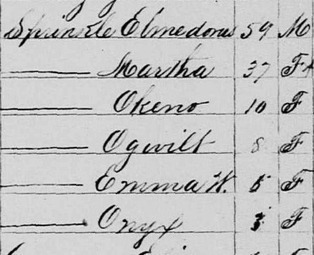 Sprinkle Elmedorus 59 M
—— Martha 37 F
—— Okeno 10 F
—— Ogwilt 8 F
—— Emma W. 5 F
—— Onyx F